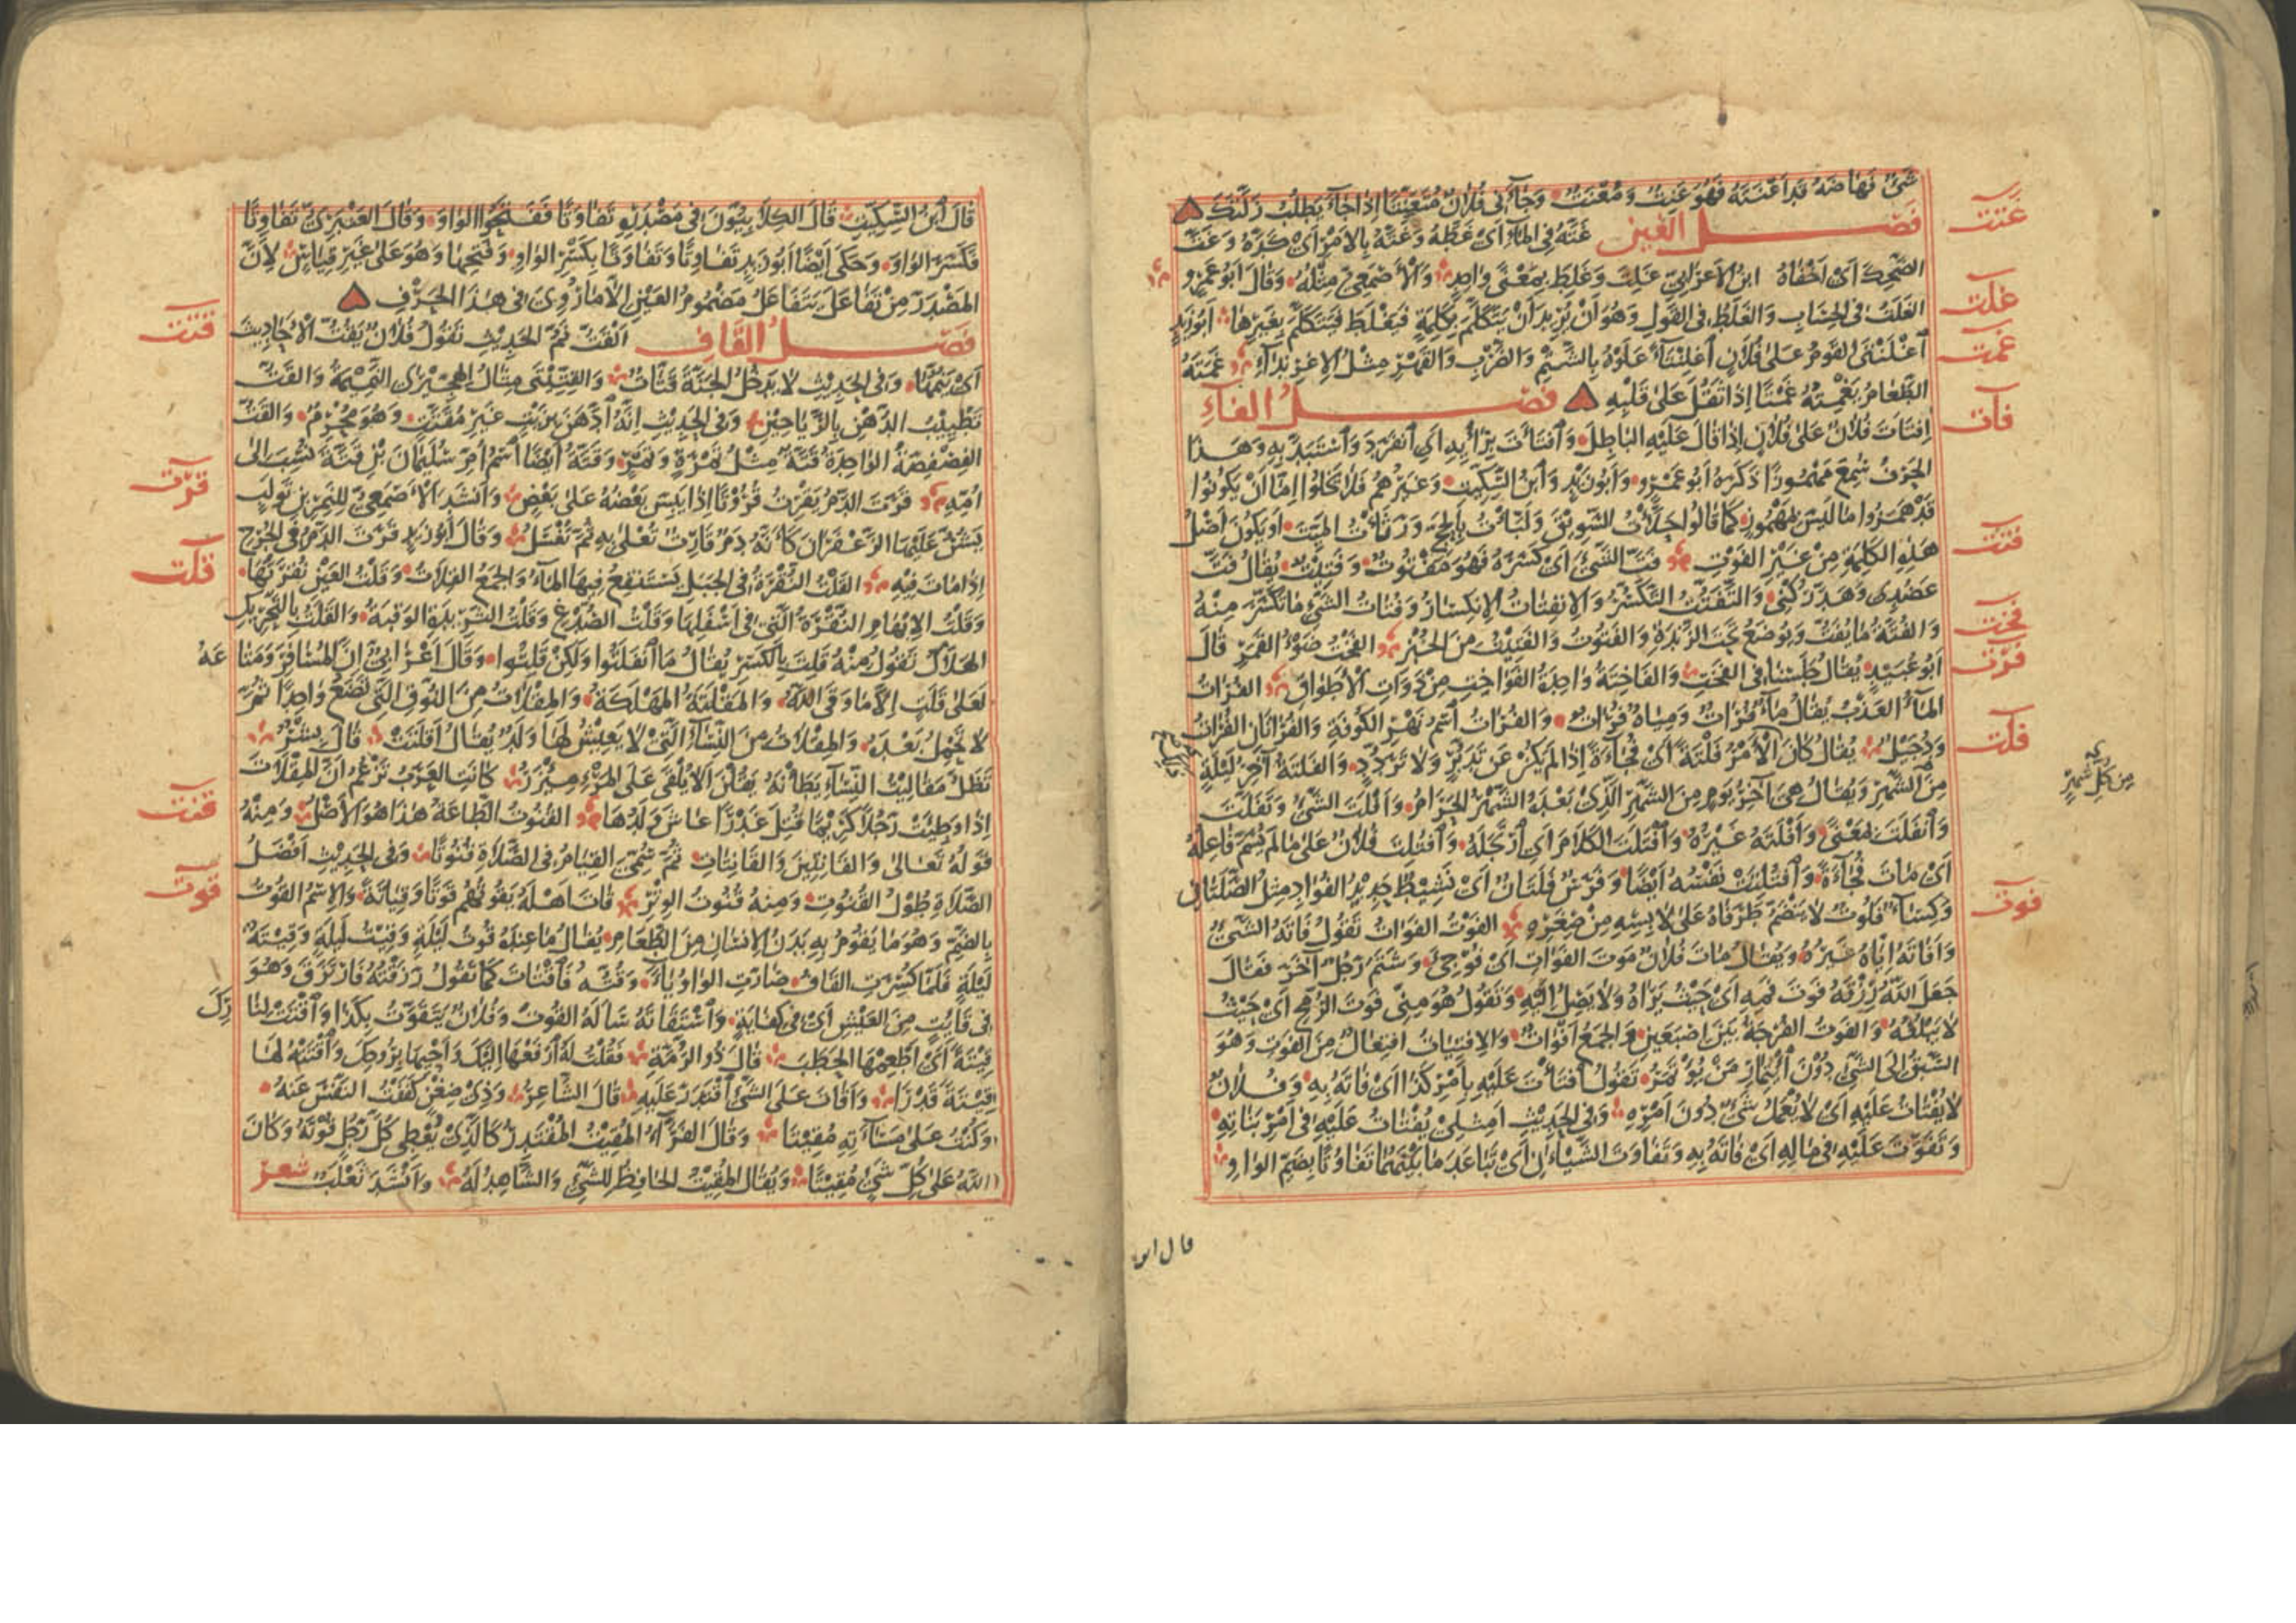 شَىْءٌ فَهَاضَهُ قَدْ اَعْنَتَهُ فَهُوَ عَنِتٌ وَمُعْنَتٌ وَجَآءَنِى فُلَانٌ مُتَعَنِّتًا اِذَا جَآءَ يَطْلُبُ زَلَّتَكَ
فصل الغين غَتَّهُ فِى الْمَآءِ اَىْ غَطَّهُ وَغَتَّهُ بِالْاَمْرِ اَىْ كَدَّهُ وَغَتَّ
الضَّحِكَ اَىْ اَخْفَاهُ ابْنُ الْاَعْرَابِىِّ غَلِتَ وَغَلِطَ بِمَعْنًى وَاحِدٍ وَالْاَصْمَعِىُّ مِثْلُهُ وَقَالَ اَبُو عَمْرٍو
الغَلَتُ فِى الْحِسَابِ وَالْغَلَطُ فِى الْقَوْلِ وَهُوَ اَنْ يُرِيدَ اَنْ يَتَكَلَّمَ بِكَلِمَةٍ فَيَغْلَطَ فَيَتَكَلَّمَ بِغَيْرِهَا اَبُو زَيْدٍ
اغْلَنْتَى الْقَوْمُ عَلَى فُلَانٍ اغْلِنْتَآءً عَلَوْهُ بِالشَّتْمِ وَالضَّرْبِ وَالْقَهْرِ مِثْلُ الِاغْرِنْدَآءِ غَمَتَهُ
الطَّعَامُ يَغْمِتُهُ غَمْتًا اِذَا ثَقُلَ عَلَى قَلْبِهِ فصل الفآء
افْتَاَتَ فُلَانٌ عَلَى فُلَانٍ اِذَا قَالَ عَلَيْهِ الْبَاطِلَ وَافْتَاَتَ بِرَاْيِهِ اَىِ انْفَرَدَ وَاسْتَبَدَّ بِهِ وَهَذَا
الْحَرْفُ سُمِعَ مَهْمُوزًا ذَكَرَهُ اَبُو عَمْرٍو وَاَبُو زَيْدٍ وَابْنُ السِّكِّيتِ وَغَيْرُهُمْ فَلَا يَخْلُو اِمَّا اَنْ يَكُونُوا
قَدْ هَمَزُوا مَا لَيْسَ بِمَهْمُوزٍ كَمَا قَالُوا حَلَّاْتُ السَّوِيقَ وَلَبَّاْتُ بِالْحَجِّ وَرَثَاْتُ الْمَيِّتَ اَوْ يَكُونَ اَصْلُ
هَذِهِ الْكَلِمَةِ مِنْ غَيْرِ الْفَوْتِ فَتَّ الشَّىْءَ اَىْ كَسَرَهُ فَهُوَ مَفْتُوتٌ وَفَتِيتٌ يُقَالُ فَتَّ
عَضُدِى وَهَدَّ رُكْنِى وَالتَّفَتُّتُ التَّكَسُّرُ وَالِانْفِتَاتُ الِانْكِسَارُ وَفُتَاتُ الشَّىْءِ مَا تَكَسَّرَ مِنْهُ
وَالْفُتَّةُ مَا يُفَتُّ وَيُوضَعُ تَحْتَ الزَّنْدَةِ وَالْفَتُوتُ وَالْفَتِيتُ مِنَ الْخُبْزِ الْفَخْتُ ضَوْءُ الْقَمَرِ قَالَ
اَبُو عُبَيْدٍ يُقَالُ جَلَسْنَا فِى الْفَخْتِ وَالْفَاخِتَةُ وَاحِدَةُ الْفَوَاخِتِ مِنْ ذَوَاتِ الْاَطْوَاقِ الْفُرَاتُ
الْمَآءُ الْعَذْبُ يُقَالُ مَآءٌ فُرَاتٌ وَمِيَاهٌ فُرَاتٌ وَالْفُرَاتُ اسْمُ نَهْرِ الْكُوفَةِ وَالْفُرَاتَانِ الْفُرَاتُ
وَدُجَيْلٌ يُقَالُ كَانَ الْاَمْرُ فَلْتَةً اَىْ فُجَآءَةً اِذَا لَمْ يَكُنْ عَنْ تَدَبُّرٍ وَلَا تَرَدُّدٍ وَالْفَلْتَةُ آخِرُ لَيْلَةٍ
مِنَ الشَّهْرِ وَيُقَالُ هِىَ آخِرُ يَوْمٍ مِنَ الشَّهْرِ الَّذِى بَعْدَهُ الشَّهْرُ الْحَرَامُ وَاَفْلَتَ الشَّىْءُ وَتَفَلَّتَ
وَانْفَلَتَ بِمَعْنًى وَاَفْلَتَهُ غَيْرُهُ وَافْتَلَتَ الْكَلَامَ اَىِ ارْتَجَلَهُ وَافْتُلِتَ فُلَانٌ عَلَى مَا لَمْ يُسَمَّ فَاعِلُهُ
اَىْ مَاتَ فُجَآءَةً وَافْتُلِتَتْ نَفْسُهُ اَيْضًا وَفَرَسٌ فَلَتَانٌ اَىْ نَشِيطٌ حَدِيدُ الْفُؤَادِ مِثْلُ الصَّلَتَانِ
وَكِسَآءٌ فَلُوتٌ لَا يَنْضَمُّ طَرَفَاهُ عَلَى لَابِسِهِ مِنْ صِغَرِهِ الْفَوْتُ الْفَوَاتُ تَقُولُ فَاتَهُ الشَّىْءُ
وَاَفَاتَهُ اِيَّاهُ غَيْرُهُ وَيُقَالُ مَاتَ فُلَانٌ مَوْتَ الْفَوَاتِ اَىْ فُوجِئَ وَشَتَمَ رَجُلٌ آخَرَ فَقَالَ
جَعَلَ اللّٰهُ رِزْقَهُ فَوْتَ فَمِهِ اَىْ حَيْثُ يَرَاهُ وَلَا يَصِلُ اِلَيْهِ وَتَقُولُ هُوَ مِنِّى فَوْتَ الرُّمْحِ اَىْ حَيْثُ
لَا يَبْلُغُهُ وَالْفَوْتُ الْفُرْجَةُ بَيْنَ اِصْبَعَيْنِ وَالْجَمْعُ اَفْوَاتٌ وَالِافْتِيَاتُ افْتِعَالٌ مِنَ الْفَوْتِ وَهُوَ
السَّبْقُ اِلَى الشَّىْءِ دُونَ ائْتِمَارِ مَنْ يُؤْتَمَرُ تَقُولُ افْتَاتَ عَلَيْهِ بِاَمْرِ كَذَا اَىْ فَاتَهُ بِهِ وَفُلَانٌ
لَا يُفْتَاتُ عَلَيْهِ اَىْ لَا يُعْمَلُ شَىْءٌ دُونَ اَمْرِهِ وَفِى الْحَدِيثِ اَمِثْلِى يُفْتَاتُ عَلَيْهِ فِى اَمْرِ بَنَاتِهِ
وَتَفَوَّتَ عَلَيْهِ فِى مَالِهِ اَىْ فَاتَهُ بِهِ وَتَفَاوَتَ الشَّيْئَانِ اَىْ تَبَاعَدَ مَا بَيْنَهُمَا تَفَاوُتًا بِضَمِّ الْوَاوِ
عنت
غلت
غمت
فأت
فتت
فخت
فرت
فلت
فوت
مِن كُلِّ شهرٍ
قال ابن
قَالَ ابْنُ السِّكِّيتِ قَالَ الْكِلَابِيُّونَ فِى مَصْدَرِهِ تَفَاوَتًا فَفَتَحُوا الْوَاوَ وَقَالَ الْعَنْبَرِىُّ تَفَاوِتًا
فَكَسَرَ الْوَاوَ وَحَكَى اَيْضًا اَبُو زَيْدٍ تَفَاوِتًا وَتَفَاوَتًا بِكَسْرِ الْوَاوِ وَفَتْحِهَا وَهُوَ عَلَى غَيْرِ قِيَاسٍ لِاَنَّ
الْمَصْدَرَ مِنْ تَفَاعَلَ يَتَفَاعَلُ مَضْمُومُ الْعَيْنِ اِلَّا مَا رُوِىَ فِى هٰذَا الْحَرْفِ
فصل القاف اَلْقَتُّ نَمُّ الْحَدِيثِ تَقُولُ فُلَانٌ يَقُتُّ الْاَحَادِيثَ
اَىْ يَنُمُّهَا وَفِى الْحَدِيثِ لَا يَدْخُلُ الْجَنَّةَ قَتَّاتٌ وَالْقِتِّيتَى مِثَالُ الْهِجِّيرَى النَّمِيمَةُ وَالْقَتُّ
تَطْيِيبُ الدُّهْنِ بِالرَّيَاحِينِ وَفِى الْحَدِيثِ اِنَّهُ ادَّهَنَ بِزَيْتٍ غَيْرِ مُقَتَّتٍ وَهُوَ مُحْرِمٌ وَالْقَتُّ
الْفِصْفِصَةُ الْوَاحِدَةُ قَتَّةٌ مِثْلُ تَمْرَةٍ وَتَمْرٍ وَقَتَّةُ اَيْضًا اسْمُ اُمِّ سُلَيْمَانَ بْنِ قَتَّةَ نُسِبَ اِلَى
اُمِّهِ قَرَتَ الدَّمُ يَقْرُتُ قُرُوتًا اِذَا يَبِسَ بَعْضُهُ عَلَى بَعْضٍ وَاَنْشَدَ الْاَصْمَعِىُّ لِلنَّمِرِ بْنِ تَوْلَبٍ
يُشَنُّ عَلَيْهَا الزَّعْفَرَانُ كَاَنَّهُ دَمٌ قَارِتٌ تُعْلَى بِهِ ثُمَّ تُغْسَلُ وَقَالَ اَبُو زَيْدٍ قَرَتَ الدَّمُ فِى الْجُرْحِ
اِذَا مَاتَ فِيهِ الْقَلْتُ النُّقْرَةُ فِى الْجَبَلِ يَسْتَنْقِعُ فِيهَا الْمَآءُ وَالْجَمْعُ الْقِلَاتُ وَقَلْتُ الْعَيْنِ نُقْرَتُهَا
وَقَلْتُ الْاِبْهَامِ النُّقْرَةُ الَّتِى فِى اَسْفَلِهَا وَقَلْتُ الصُّدْغِ وَقَلْتُ الثَّرِيدَةِ الْوَقْبَةُ وَالْقَلَتُ بِالتَّحْرِيكِ
الْهَلَاكُ تَقُولُ مِنْهُ قَلِتَ بِالْكَسْرِ يُقَالُ مَا انْفَلَتُوا وَلٰكِنْ قَلِتُوا وَقَالَ اَعْرَابِىٌّ اِنَّ الْمُسَافِرَ وَمَتَاعَهُ
لَعَلَى قَلَتٍ اِلَّا مَا وَقَى اللّٰهُ وَالْمَقْلَتَةُ الْمَهْلَكَةُ وَالْمِقْلَاتُ مِنَ النُّوقِ الَّتِى تَضَعُ وَاحِدًا ثُمَّ
لَا تَحْمِلُ بَعْدَهُ وَالْمِقْلَاتُ مِنَ النِّسَآءِ الَّتِى لَا يَعِيشُ لَهَا وَلَدٌ يُقَالُ اَقْلَتَتْ قَالَ بِشْرٌ
تَظَلُّ مَقَالِيتُ النِّسَآءِ يَطَاْنَهُ يَقُلْنَ اَلَا يُلْقَى عَلَى الْمَرْءِ مِئْزَرُ كَانَتِ الْعَرَبُ تَزْعُمُ اَنَّ الْمِقْلَاتَ
اِذَا وَطِئَتْ رَجُلًا كَرِيمًا قُتِلَ غَدْرًا عَاشَ وَلَدُهَا الْقُنُوتُ الطَّاعَةُ هٰذَا هُوَ الْاَصْلُ وَمِنْهُ
قَوْلُهُ تَعَالٰى وَالْقَانِتِينَ وَالْقَانِتَاتِ ثُمَّ سُمِّىَ الْقِيَامُ فِى الصَّلَاةِ قُنُوتًا وَفِى الْحَدِيثِ اَفْضَلُ
الصَّلَاةِ طُوْلُ الْقُنُوتِ وَمِنْهُ قُنُوتُ الْوِتْرِ قَاتَ اَهْلَهُ يَقُوتُهُمْ قَوْتًا وَقِيَاتَةً وَالِاسْمُ الْقُوتُ
بِالضَّمِّ وَهُوَ مَا يَقُومُ بِهِ بَدَنُ الْاِنْسَانِ مِنَ الطَّعَامِ يُقَالُ مَا عِنْدَهُ قُوتُ لَيْلَةٍ وَقِيتُ لَيْلَةٍ وَقِيتَةُ
لَيْلَةٍ فَلَمَّا كُسِرَتِ الْقَافُ صَارَتِ الْوَاوُ يَآءً وَقُتُّهُ فَاقْتَاتَ كَمَا تَقُولُ رَزَقْتُهُ فَارْتَزَقَ وَهُوَ
فِى قَآئِتٍ مِنَ الْعَيْشِ اَىْ فِى كِفَايَةٍ وَاسْتَقَاتَهُ سَاَلَهُ الْقُوتَ وَفُلَانٌ يَتَقَوَّتُ بِكَذَا وَاقْتَتْ لِنَارِكَ
قِيتَةً اَىْ اَطْعِمْهَا الْحَطَبَ قَالَ ذُو الرُّمَّةِ فَقُلْتُ لَهُ ارْفَعْهَا اِلَيْكَ وَاَحْيِهَا بِرُوحِكَ وَاقْتَتْهُ لَهَا
قِيتَةً قَدْرَا وَاَقَاتَ عَلَى الشَّىْءِ اقْتَدَرَ عَلَيْهِ قَالَ الشَّاعِرُ وَذِى ضِغْنٍ كَفَفْتُ النَّفْسَ عَنْهُ
وَكُنْتُ عَلَى مَسَآءَتِهِ مُقِيتَا وَقَالَ الْفَرَّآءُ الْمُقِيتُ الْمُقْتَدِرُ كَالَّذِى يُعْطِى كُلَّ رَجُلٍ قُوتَهُ وَكَانَ
اللّٰهُ عَلَى كُلِّ شَىْءٍ مُقِيتًا وَيُقَالُ الْمُقِيتُ الْحَافِظُ لِلشَّىْءِ وَالشَّاهِدُ لَهُ وَاَنْشَدَ ثَعْلَبٌ شعر
قتت
قرت
قلت
قنت
قوت